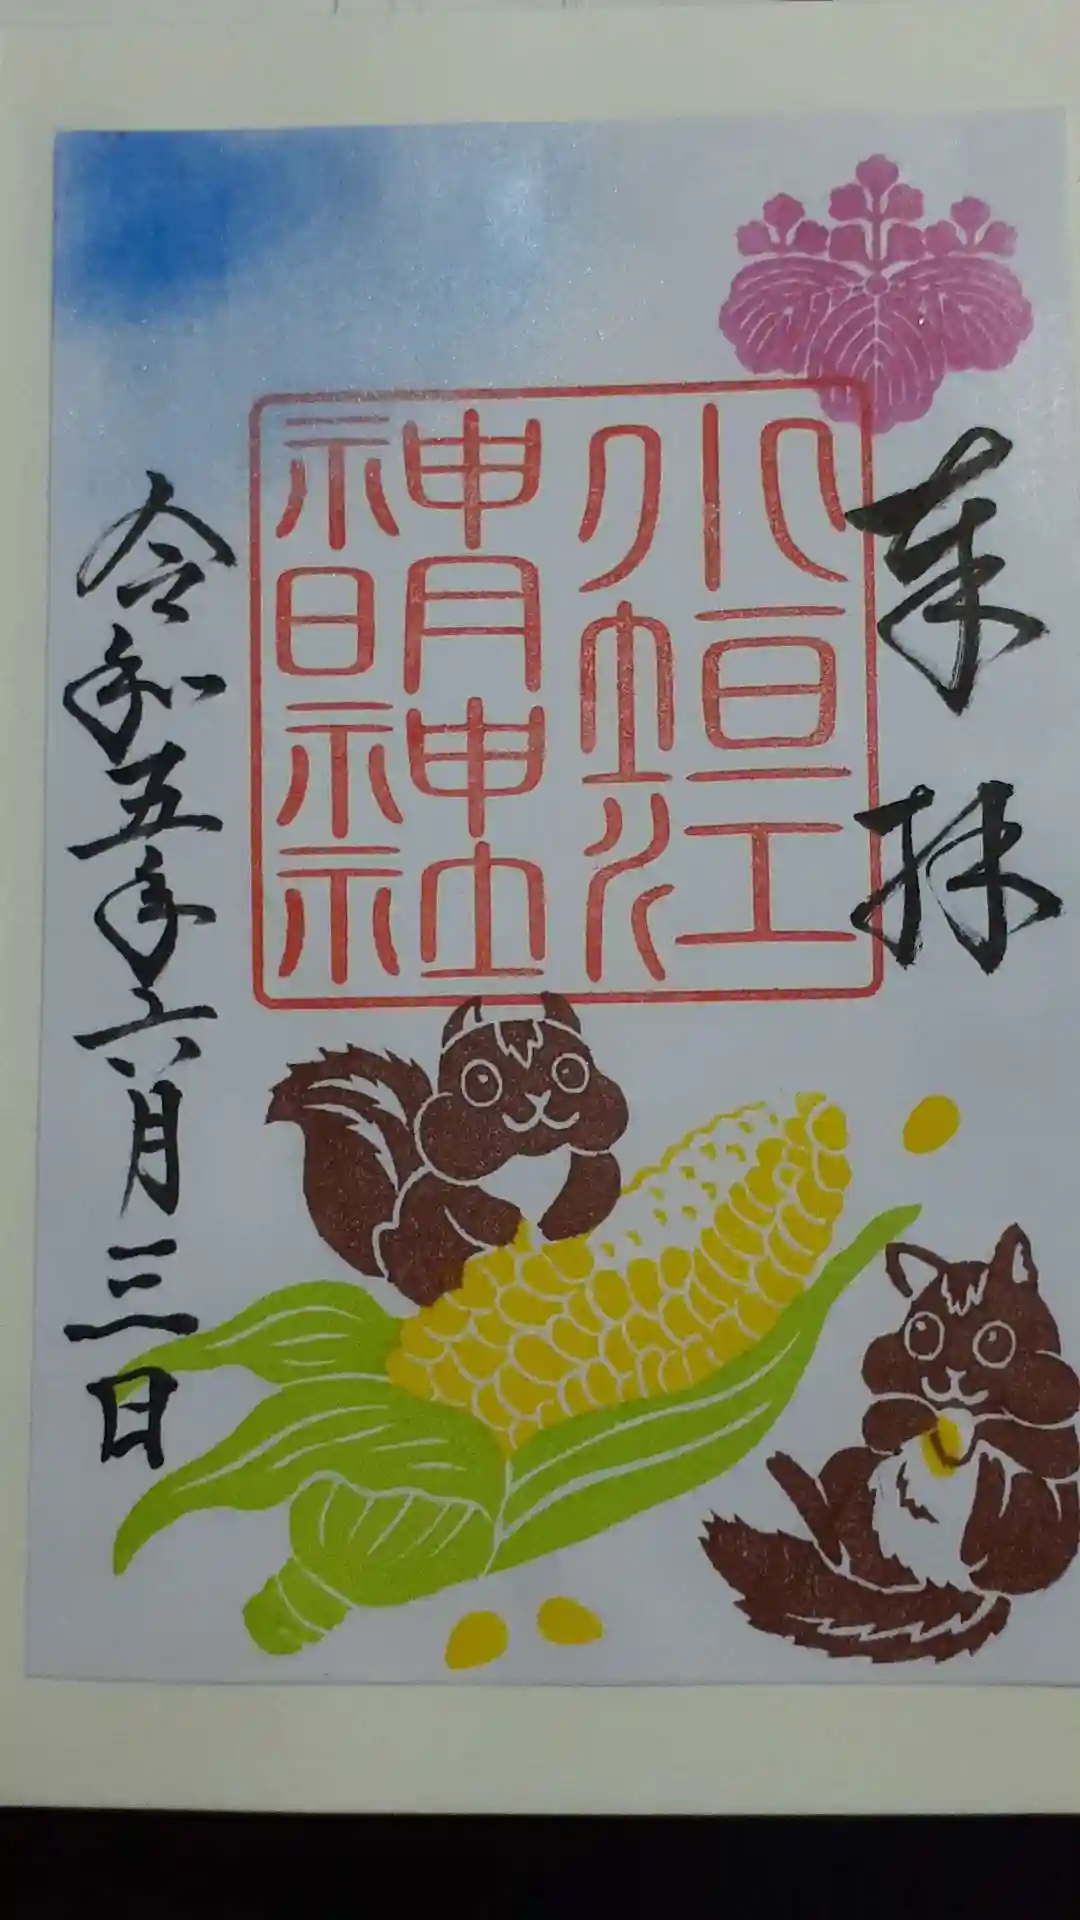 奉拝
小垣江
神明神社
令和五年六月三日